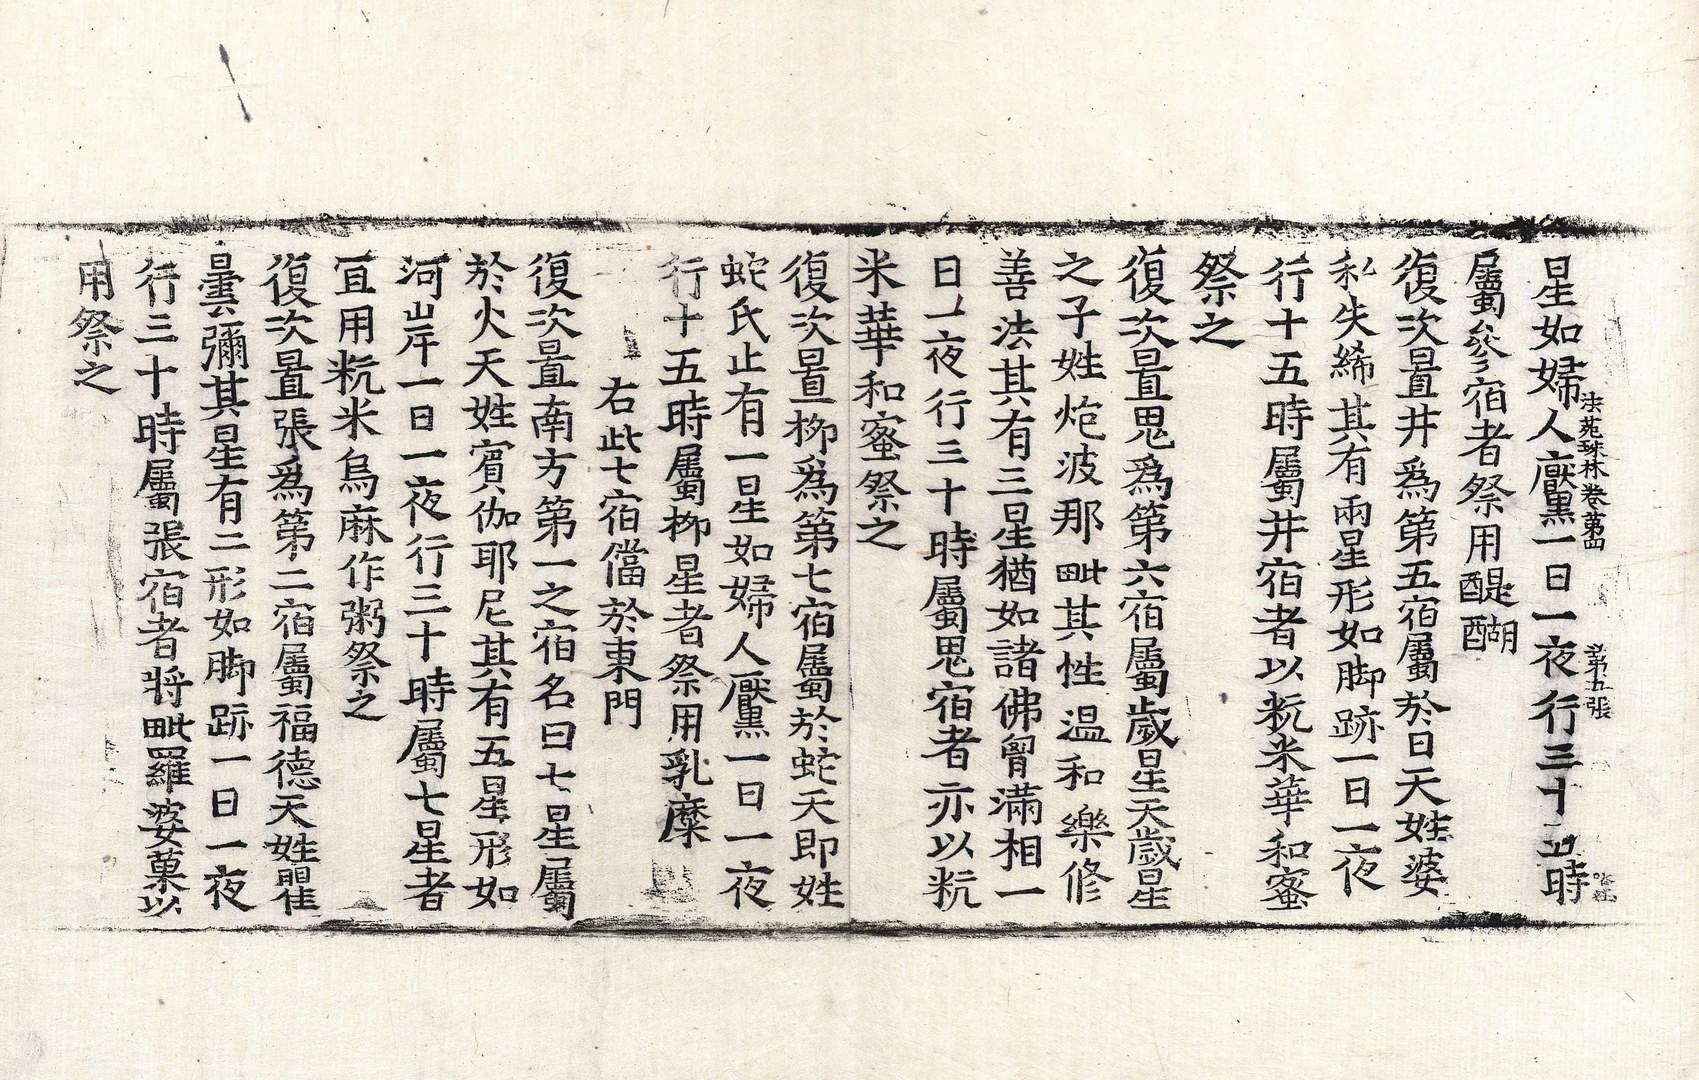 星如婦人黶一日一夜行三十五時
法苑珠林卷第四 第五張
屬參宿者祭用醍醐
復次置井爲第五宿屬於日天姓婆
私失絺其有兩星形如脚跡一日一夜
行十五時屬井宿者以粇米華和蜜
祭之
復次置鬼爲第六宿屬歲星天歲星
之子姓炮波那毗其性温和樂修
善法其有三星猶如諸佛胷滿相一
日一夜行三十時屬鬼宿者亦以粇
米華和蜜祭之
復次置柳爲第七宿屬於蛇天即姓
蛇氏止有一星如婦人黶一日一夜
行十五時屬柳星者祭用乳糜
右此七宿當於東門
復次置南方第一之宿名曰七星屬
於火天姓賓伽耶尼其有五星形如
河岸一日一夜行三十時屬七星者
宜用粇米烏麻作粥祭之
復次置張爲第二宿屬福德天姓瞿
曇彌其星有二形如脚跡一日一夜
行三十時屬張宿者將毗羅婆菓以
用祭之